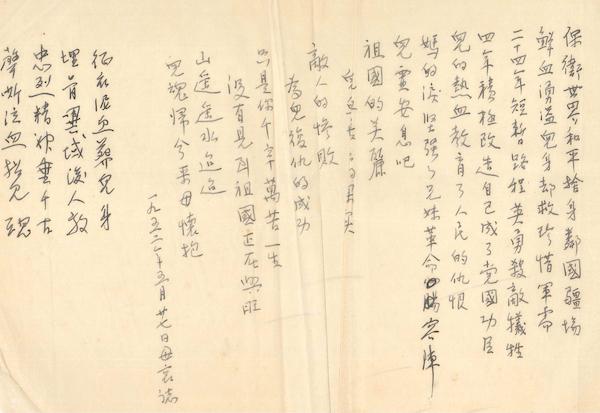 保衛世界和平捨身鄰國疆場
鮮血湧溢兒身却救珍惜軍需
二十四年短暫路程英勇殺敵犧牲
四年積極改造自己成了党國功臣
兒的熱血教育了人民的仇恨
媽的淚坚强了兄妹革命的陣容
兒靈安息吧
祖國的美麗
敵人的惨敗
為兒復仇的成功
只是你千辛萬苦一生
沒有見到祖國正在興旺
山遥遥水迢迢
兒魂歸兮来母懷抱
一九五三年五月廿七日母哀誌
征衣泥血葬兒身
埋骨異域後人敬
忠烈精神垂千古
聲嘶泣血招兒魂